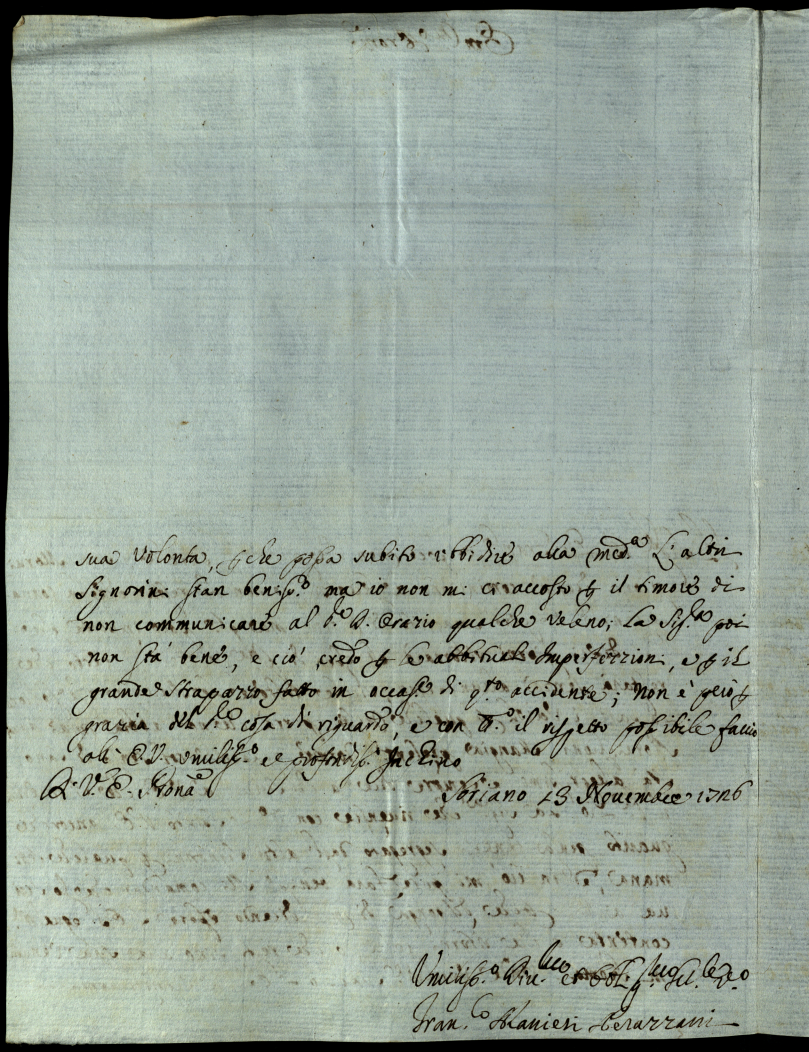 sua Volontà, p che possa subito ubbidire alla med.a L'altri
Signorini stan beniss.o ma io non mi ci accosto p il timore di
non communicare al S.r D. Orazio qualche veleno; La Sig.ra poi
non stà bene, e ciò credo p le abbituali Imperfezzioni, e p il
grande strapazzo fatto in occas.e di q.to accidente; non è però p
grazia del S.re cosa di riguardo, e con tt.o il rispetto possibile faccio
all' E.V. umiliss.o e profondiss. Inchino
Di V.E. Prona
Soriano 13 Novembre 1726
Umiliss.o Div.mo et Obl.mo
Fran.co Ranieri Perazzani